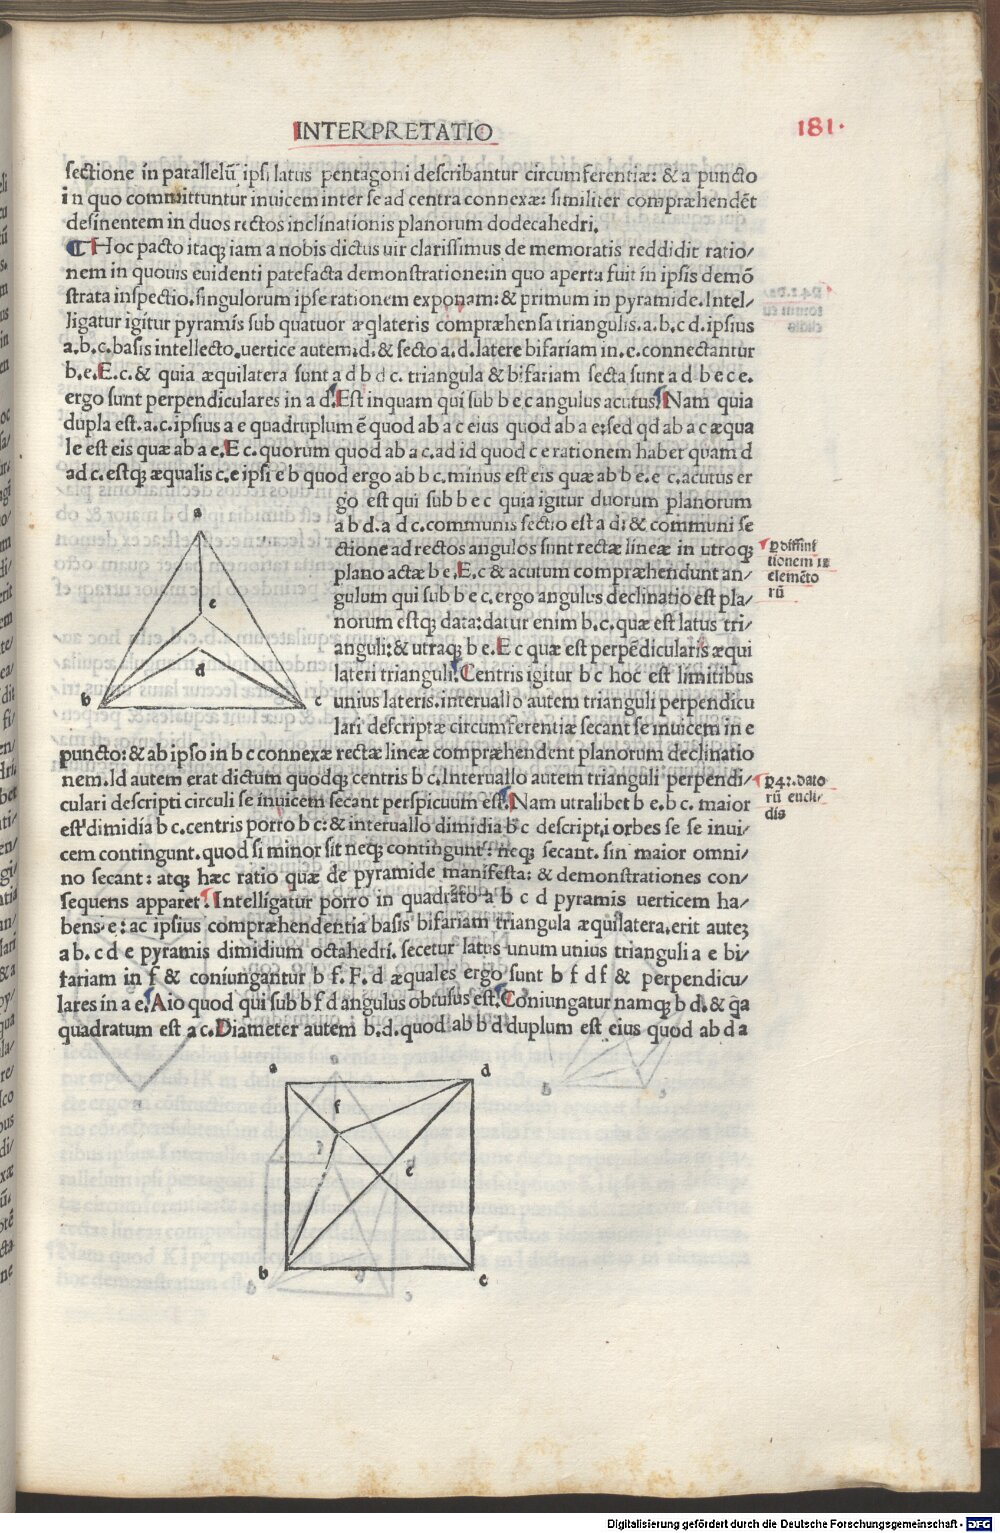 INTERPRETATIO
181.
sectione in parallelū ipsi latus pentagoni describantur circumferentiæ: & a puncto
in quo committuntur inuicem inter se ad centra connexæ: similiter compræhendēt
desinentem in duos rectos inclinationis planorum dodecahedri.
Hoc pacto itaqꝫ iam a nobis dictus uir clarissimus de memoratis reddidit ratio/
nem in quouis euidenti patefacta demonstratione: in quo aperta fuit in ipsis demō
strata inspectio. singulorum ipse rationem exponam: & primum in pyramide. Intel/
ligatur igitur pyramis sub quatuor æqlateris compræhensa triangulis. a. b. c d. ipsius
a. b. c. basis intellecto. uertice autem: d. & secto a. d. latere bifariam in. e. connectantur
b. e. E. c. & quia æquilatera sunt a d b d c. triangula & bifariam secta sunt a d b e c e.
ergo sunt perpendiculares in a d. Est inquam qui sub b e c angulus acutus. Nam quia
dupla est. a. c. ipsius a e quadruplum ē quod ab a c eius quod ab a e: sed qd ab a c æqua
le est eis quæ ab a e. E c. quorum quod ab a c. ad id quod c e rationem habet quam d
ad c. estqꝫ æqualis c. e ipsi e b quod ergo ab b c. minus est eis quæ ab b e. e c. acutus er
go est qui sub b e c quia igitur duorum planorum
a b d. a d c. communis sectio est a d: & communi se
ctione ad rectos angulos sunt rectæ lineæ in utroqꝫ
plano actæ b e. E. c & acutum compræhendunt an/
gulum qui sub b e c. ergo angulus declinatio est pla/
norum estqꝫ data: datur enim b. c. quæ est latus tri/
anguli: & utraqꝫ b e. E c quæ est perpēdicularis æqui
lateri trianguli. Centris igitur b c hoc est limitibus
unius lateris. interuallo autem trianguli perpendicu
lari descriptæ circumferentiæ secant se inuicem in e
puncto: & ab ipso in b c connexæ rectæ lineæ compræhendent planorum declinatio
nem. Id autem erat dictum quodqꝫ centris b c. Interuallo autem trianguli perpendi/
culari descripti circuli se inuicem secant perspicuum est. Nam utralibet b e. b c. maior
est dimidia b c. centris porro b c: & interuallo dimidia b c descripti orbes se se inui/
cem contingunt. quod si minor sit neqꝫ contingunt: neqꝫ secant. sin maior omni/
no secant: atqꝫ hæc ratio quæ de pyramide manifesta: & demonstrationes con/
sequens apparet. Intelligatur porro in quadrato a b c d pyramis uerticem ha/
bens. e: ac ipsius compræhendentia basis bifariam triangula æquilatera. erit auteꝫ
a b. c d e pyramis dimidium octahedri. secetur latus unum unius trianguli a e bi/
fariam in f & coniungantur b f. F. d æquales ergo sunt b f d f & perpendicu/
lares in a e. Aio quod qui sub b f d angulus obtusus est. Coniungatur namqꝫ b d. & q̄a
quadratum est a c. Diameter autem b. d. quod ab b d duplum est eius quod ab d a
ꝑ diffini
tionem
elemēto
rū
dato
rū eucli/
dis
a
e
d
b
c
a
d
f
e
b
c
Digitalisierung gefördert durch die Deutsche Forschungsgemeinschaft - DFG